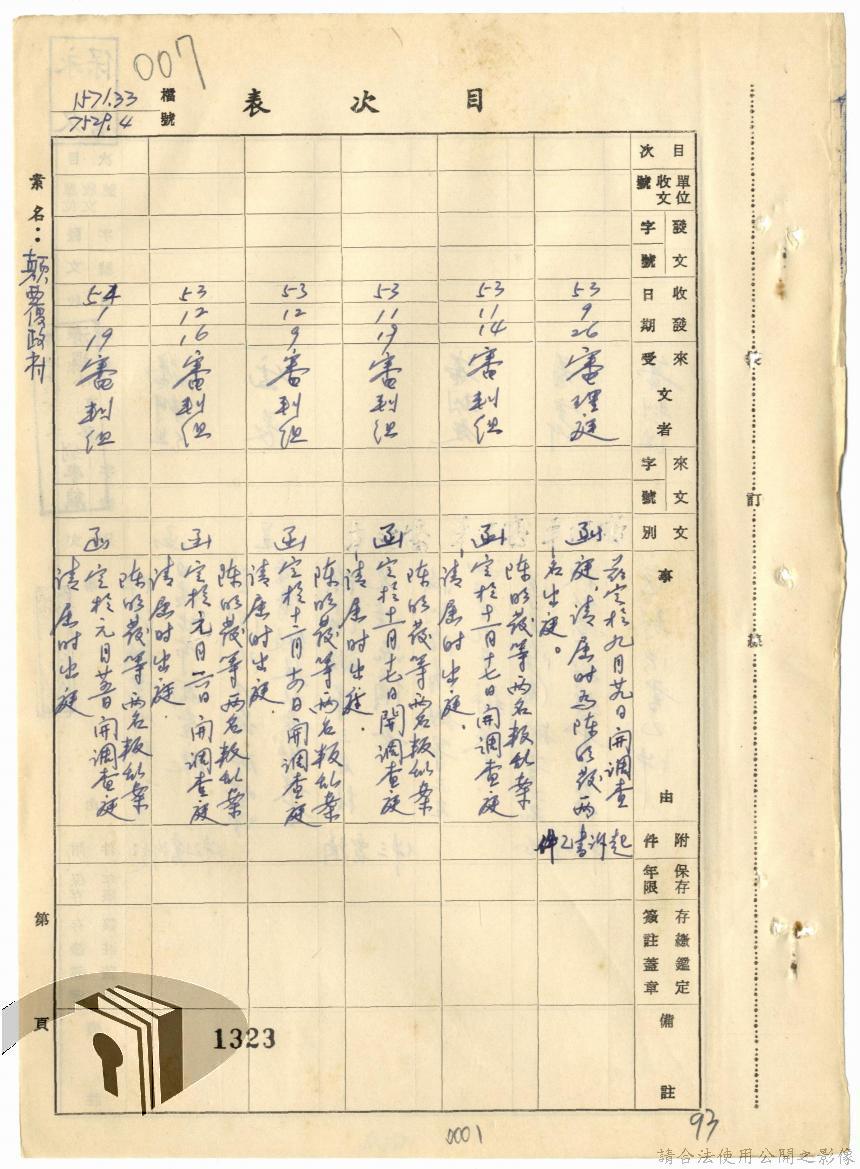 007
1571.33
7529.4
檔號
目次表
案名：顛覆政府
目次
單位收文號
發文字號
收發日期
來受文者
來文字號
文別
事由
附件
保存年限
存繳鑑定簽註蓋章
備註
53
9
26
審理庭
函
茲定於九月廿九日開調查
庭，請屆時為陳明發兩
名出庭。
起訴書乙件
53
11
14
審判組
函
陳明發等兩名叛亂案
定於十一月十七日開調查庭
請屆時出庭.
53
11
19
審判組
函
陳明發等兩名叛亂案
定於十一月十七日開調查庭
請屆時出庭.
53
12
9
審判組
函
陳明發等兩名叛亂案
定於十二月 日開調查庭
請屆時出庭.
53
12
16
審判組
函
陳明發等兩名叛亂案
定於元月 日開調查庭
請屆時出庭
54
1
19
審判組
函
陳明發等兩名叛亂案
定於元月廿五日開調查庭
請屆時出庭
第
頁
裝
訂
線
1323
0001
93
請合法使用公開之影像